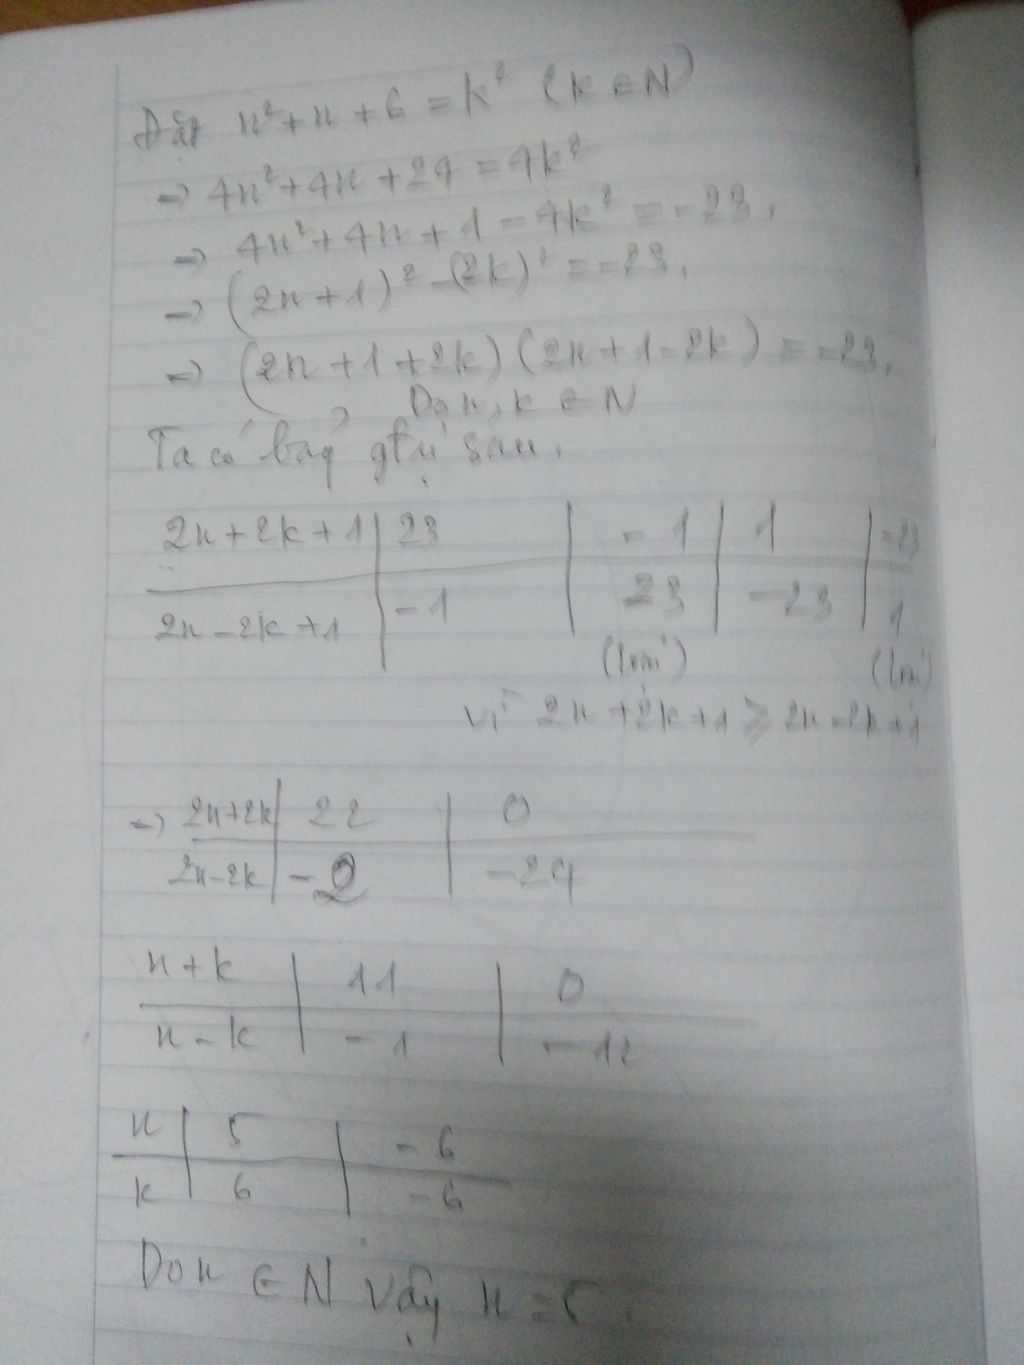 Đặt n² + n + 6 = k² (k ∈ N)
→ 4n² + 4n + 24 = 4k²
→ 4n² + 4n + 1 - 4k² = -23.
→ (2n + 1)² - (2k)² = -23.
→ (2n + 1 + 2k) (2n + 1 - 2k) = -23.
Do n, k ∈ N
Ta có bảng gtrị sau.
2n + 2k + 1 | 23 | -1 | 1 | -23
2n - 2k + 1 | -1 | 23 | -23 | 1
(loại) (loại)
vì 2n + 2k + 1 ≥ 2n - 2k + 1
→ 2n + 2k | 22 | 0
2n - 2k | -2 | -24
n + k | 11 | 0
n - k | -1 | -12
n | 5 | -6
k | 6 | -6
Do n ∈ N Vậy n = 5.